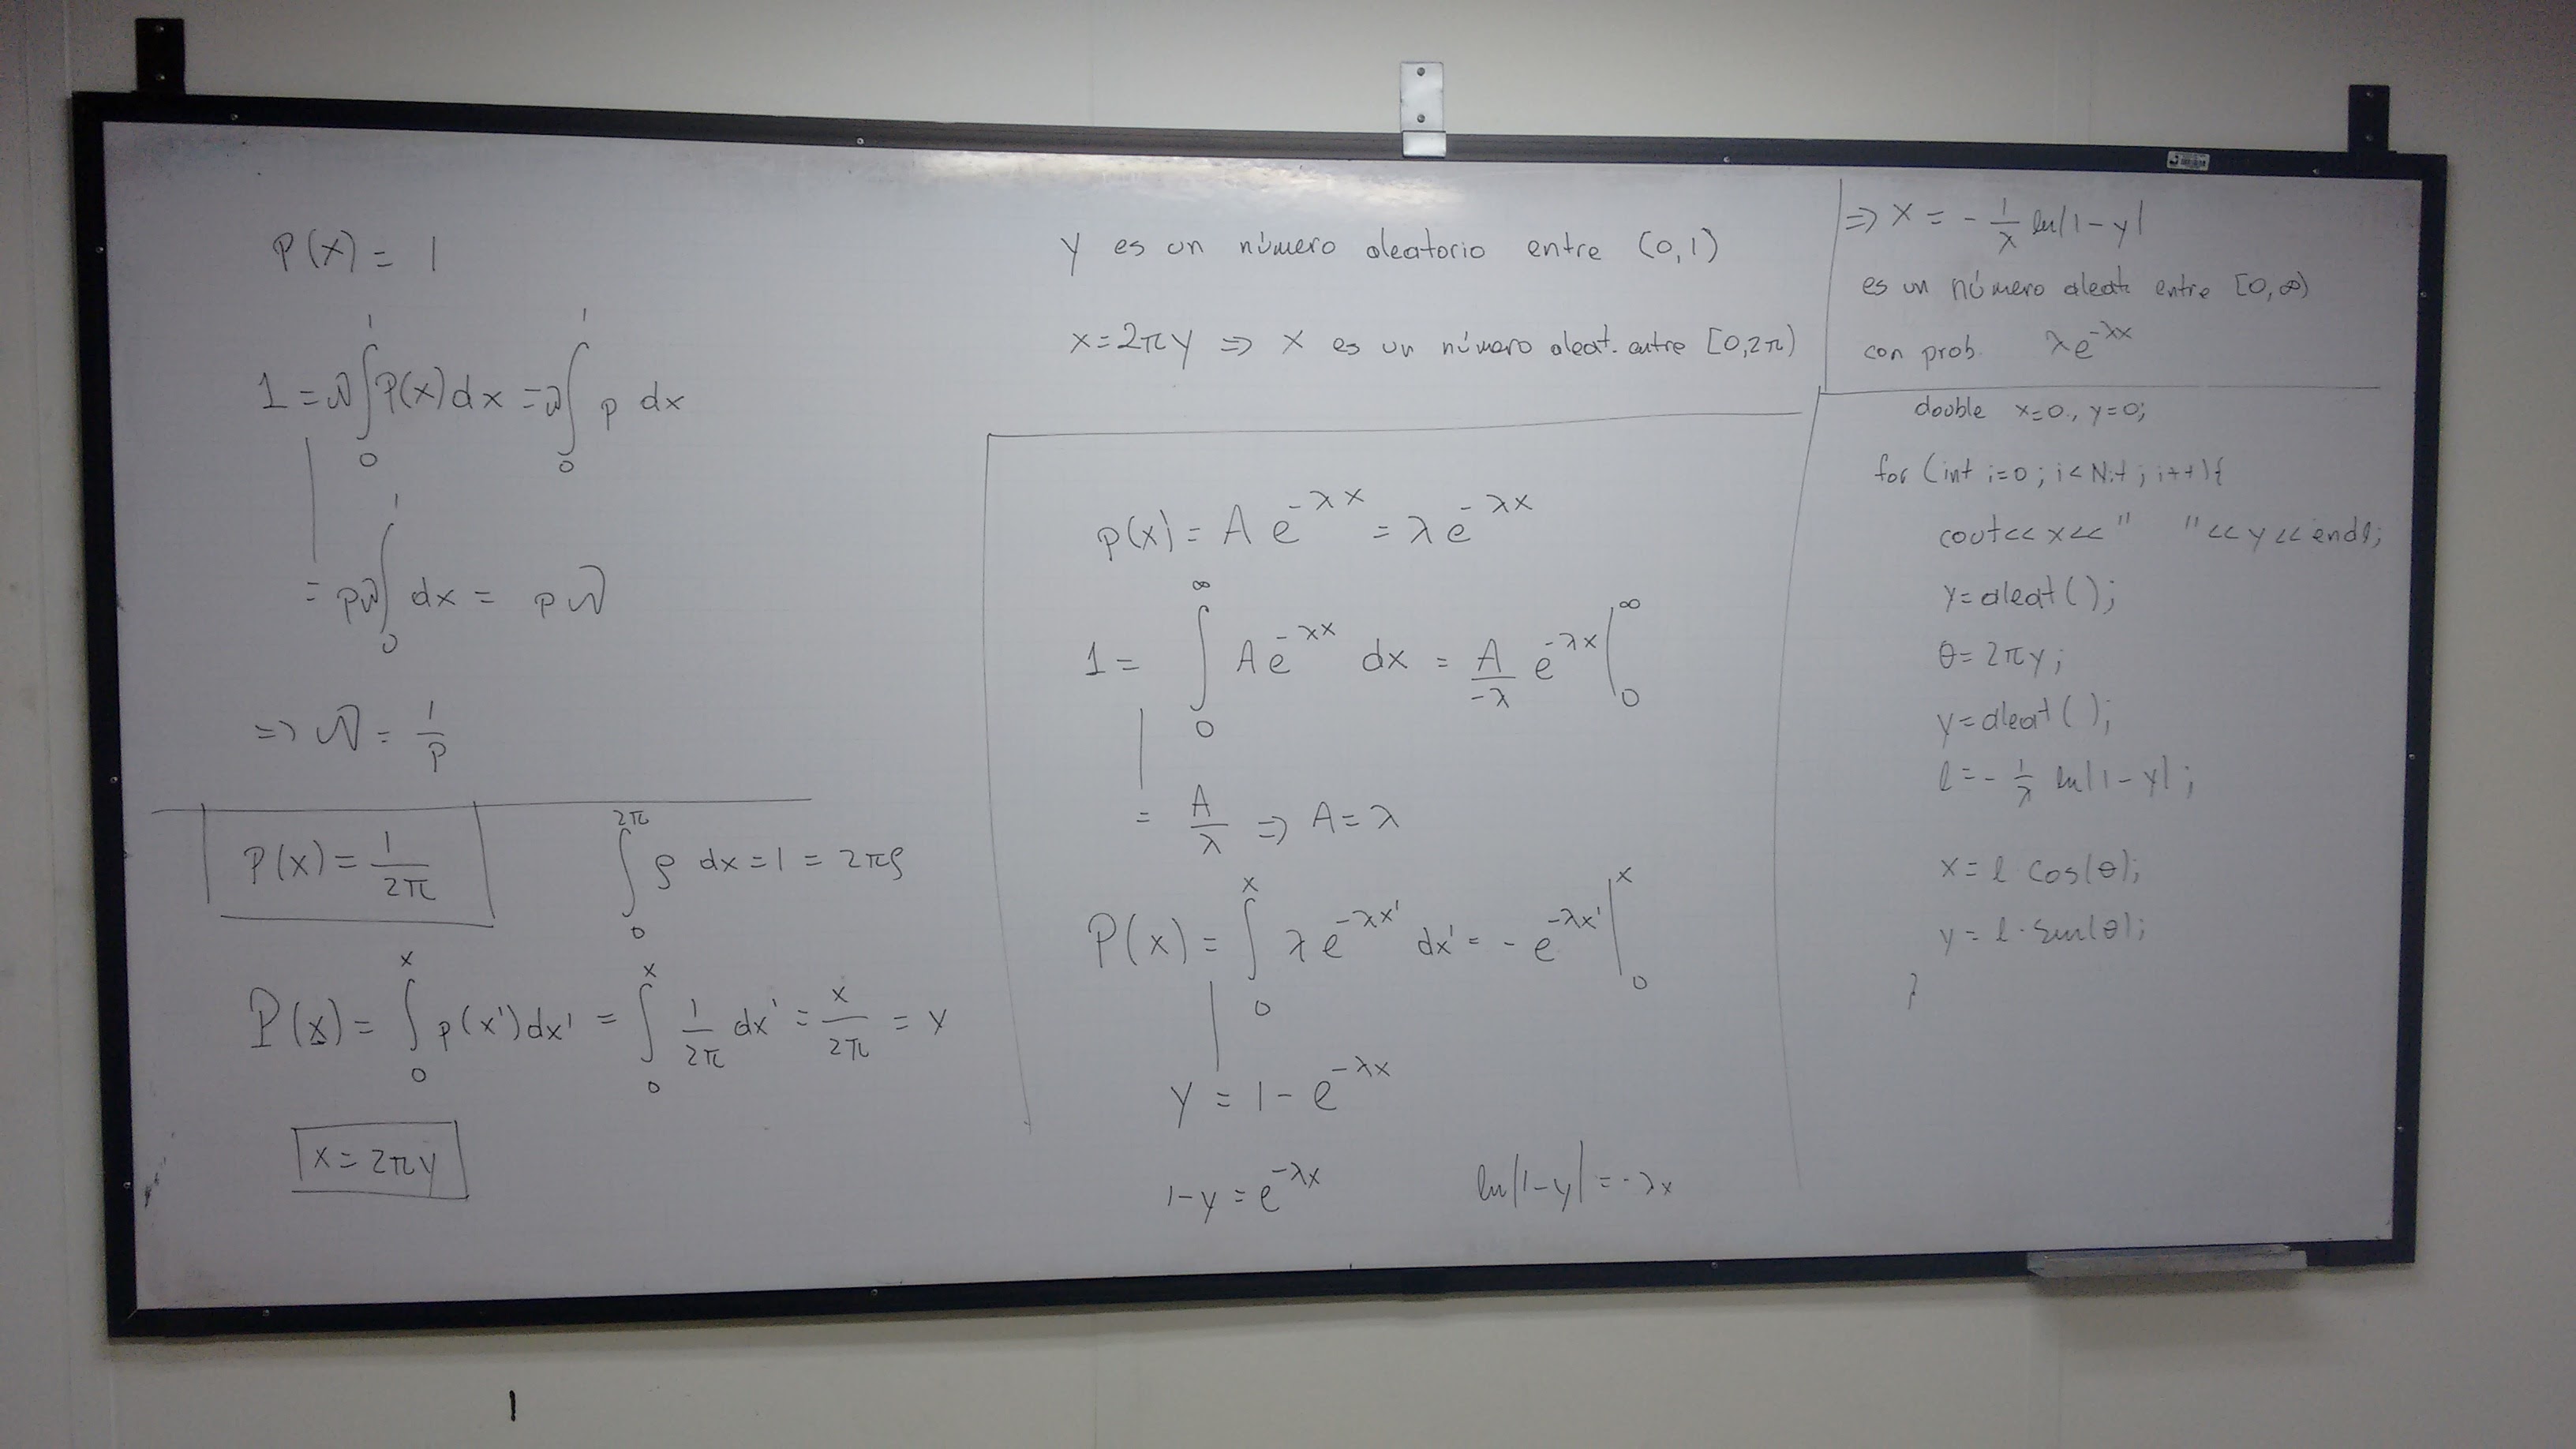 P(x) = 1
1 = N ∫₀¹ P(x) dx = N ∫₀¹ p dx
= pN ∫₀¹ dx = pN
⇒ N = 1/p
P(x) = 1/2π
∫₀^2π ρ dx = 1 = 2πρ
P(x) = ∫₀ˣ p(x') dx' = ∫₀ˣ 1/2π dx' = x/2π = y
x = 2πy
y es un número aleatorio entre (0,1)
x = 2πy ⇒ x es un número aleat. entre [0,2π)
p(x) = A e^-λx = λ e^-λx
1 = ∫₀^∞ A e^-λx dx = A/-λ e^-λx |₀^∞
= A/λ ⇒ A = λ
P(x) = ∫₀ˣ λ e^-λx' dx' = - e^-λx' |₀ˣ
y = 1 - e^-λx
1-y = e^-λx
ln|1-y| = -λx
⇒ x = - 1/λ ln|1-y|
es un número aleat. entre [0,∞)
con prob. λe^-λx
double x=0., y=0;
for (int i=0; i<Nit; i++){
cout<< x<< "   "<< y << endl;
y= aleat( );
θ= 2πy;
y= aleat( );
l= - 1/λ ln|1-y|;
x= l cos(θ);
y= l·sen(θ);
}